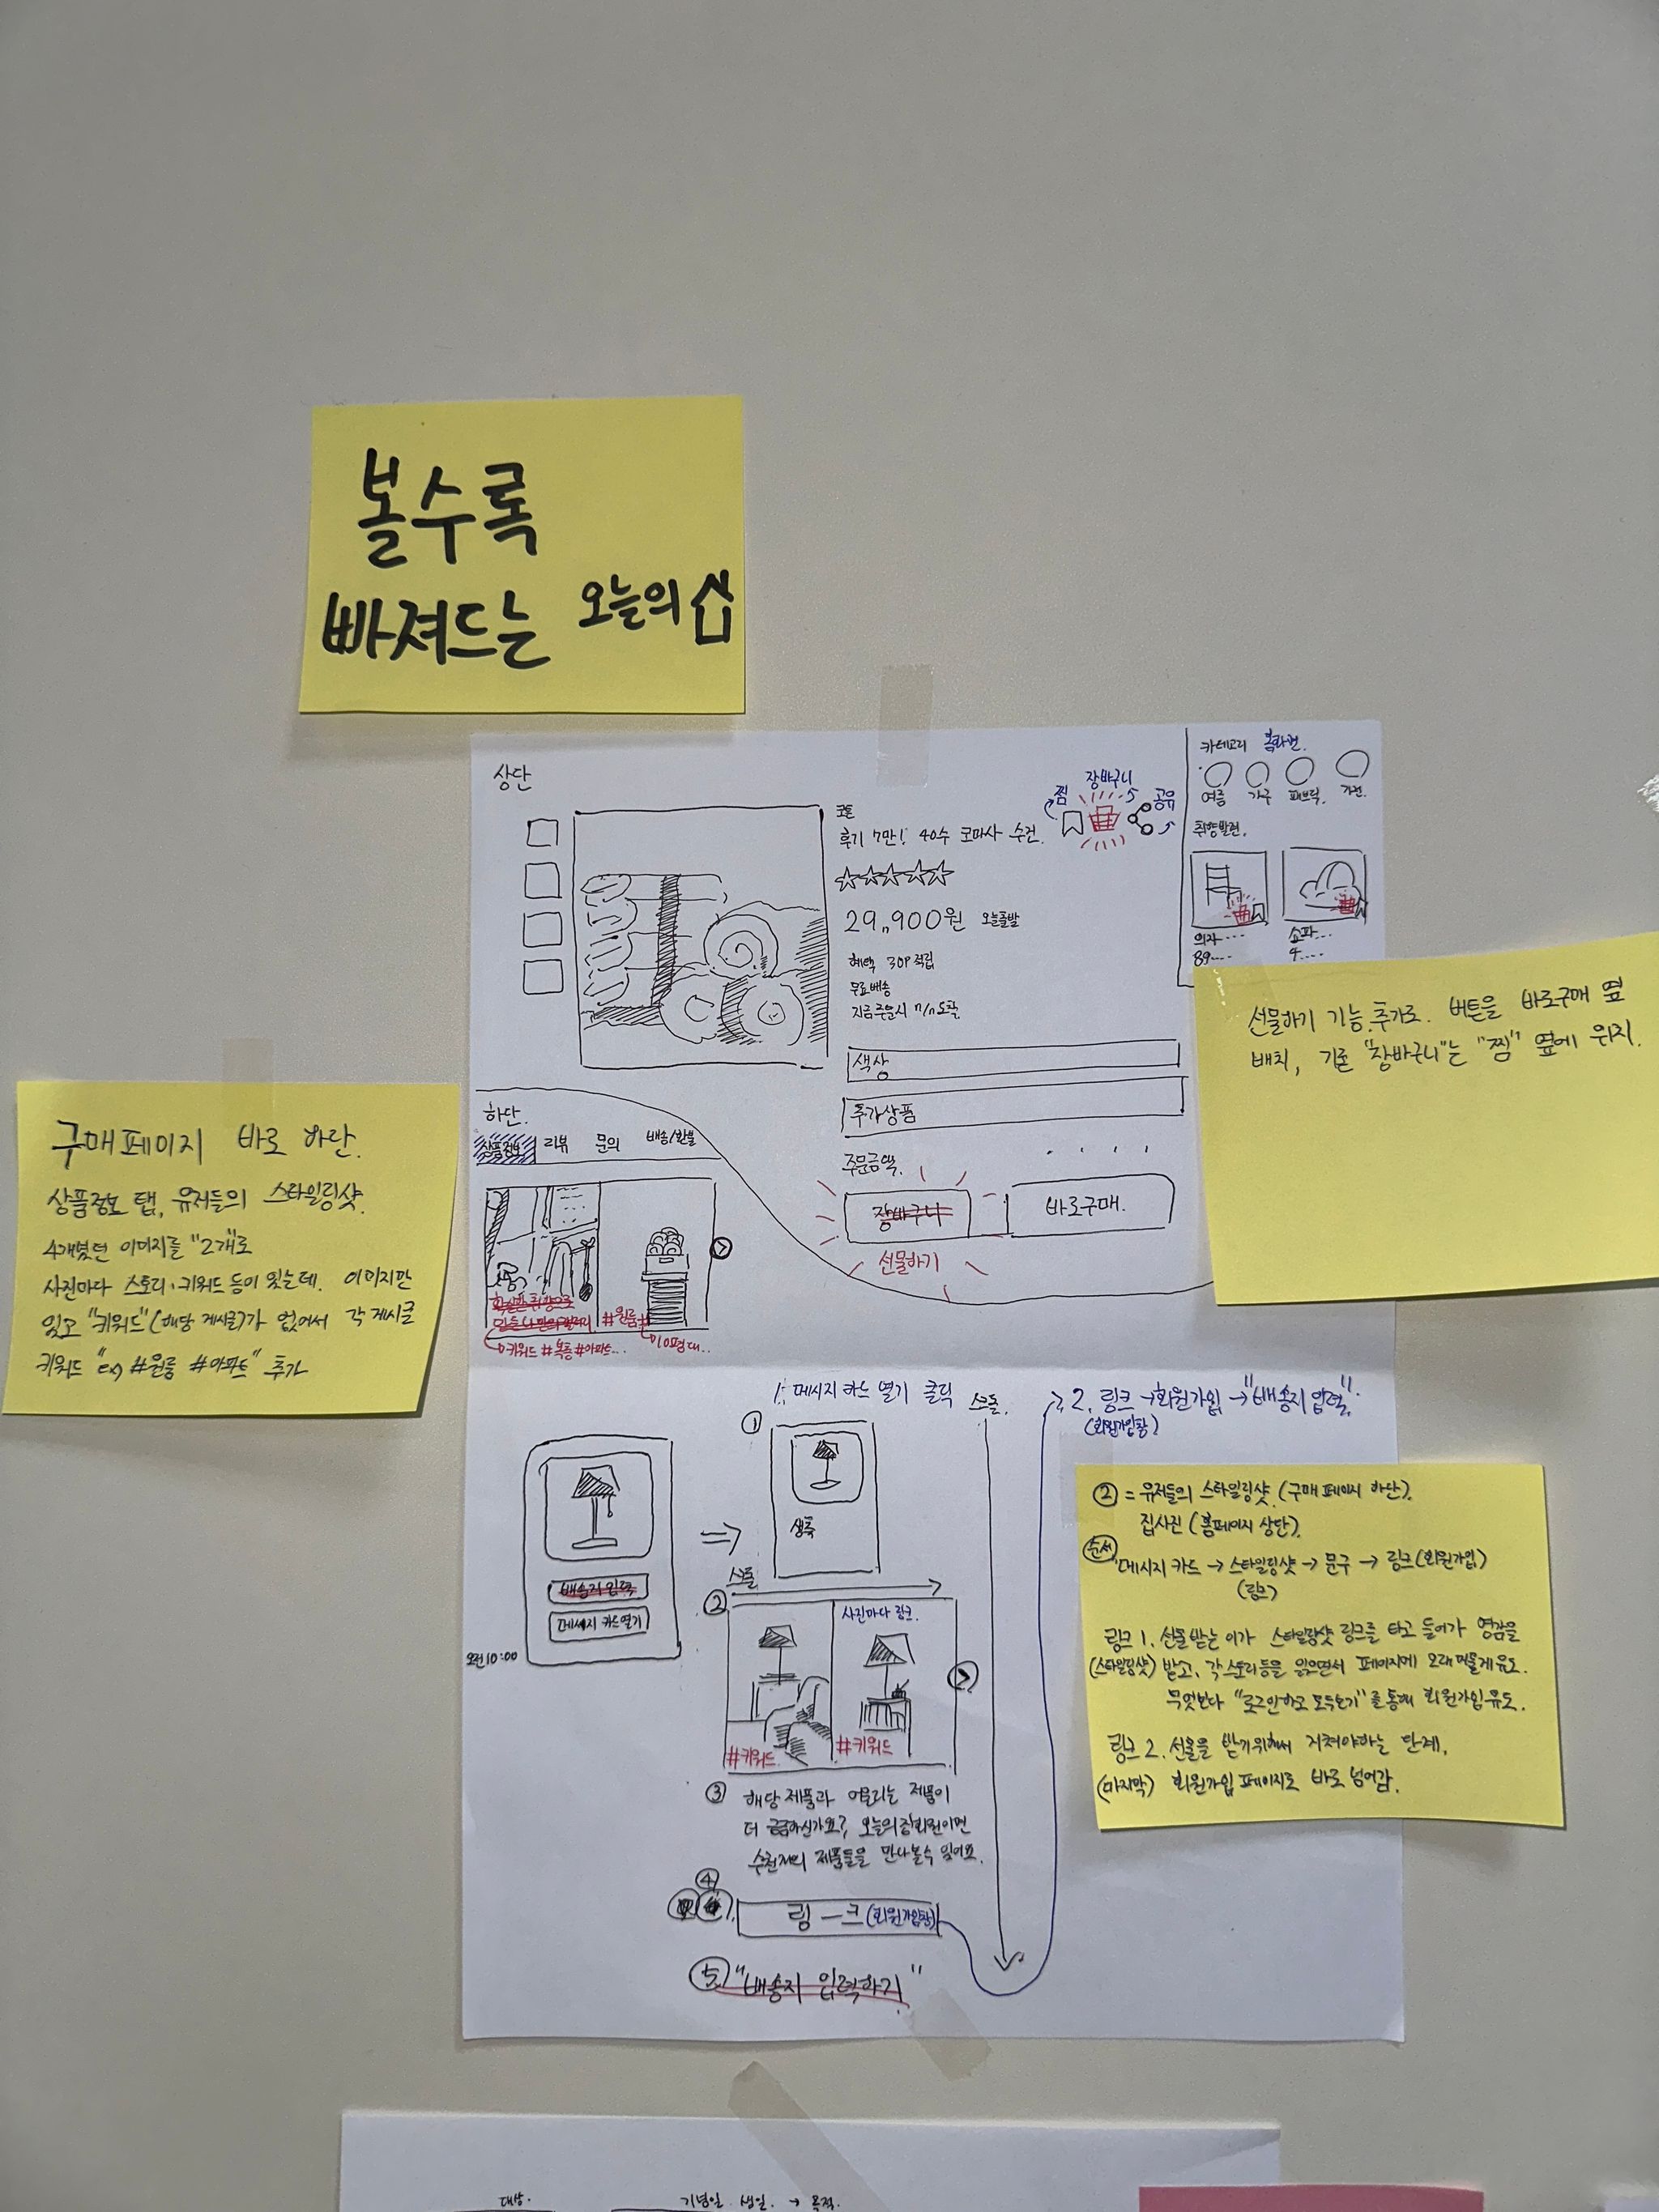 볼수록
빠져드는 오늘의
상단
찜 장바구니 공유
코튼
후기 7만! 40수 코마사 수건.
29,900원 오늘출발
혜택 30P 적립
무료배송
지금 주문시 n/n 도착
색상
추가상품
주문금액.
장바구니
바로구매.
선물하기
카테고리
여름 가구 패브릭. 가전.
취향발견.
의자....
89....
소파...
4....
선물하기 기능 추가로. 버튼을 바로구매 옆
배치, 기존 "장바구니"는 "찜" 옆에 위치.
하단.
상품정보 리뷰 문의 배송/환불
#원룸 #
키워드 #복층 #아파트... 10평대..
구매페이지 바로 하단.
상품정보 탭, 유저들의 스타일링샷.
4개였던 이미지를 "2개"로
사진마다 스토리·키워드 등이 있는데. 이미지만
있고 "키워드"(해당 게시글)가 없어서 각 게시글
키워드 "ex) #원룸 #아파트" 추가
1. 메시지 카드 열기 클릭
스크롤.
2. 링크 → 회원가입 → "배송지 입력"
(회원가입창)
배송지 입력
메시지 카드 열기
오전 10:00
①
생략
스크롤
②
사진마다 링크.
#키워드 #키워드
③ 해당 제품과 어울리는 제품이
더 궁금하신가요? 오늘의집 회원이면
수천개의 제품들을 만나볼수 있어요.
④
링크 (회원가입창)
⑤ "배송지 입력하기"
② = 유저들의 스타일링샷. (구매페이지 하단).
집사진 (홈페이지 상단).
순서
메시지 카드 → 스타일링샷 → 문구 → 링크 (회원가입)
(링크)
링크 1. 선물 받는 이가 스타일링샷 링크를 타고 들어가 영감을
(스타일링샷) 받고, 각 스토리 등을 읽으면서 페이지에 오래 머물게 유도.
무엇보다 "로그인하고 모두보기"를 통해 회원가입 유도.
링크 2. 선물을 받기위해서 거쳐야하는 단계.
(마지막) 회원가입 페이지로 바로 넘어감.
대상. 기념일. 생일. → 목적.